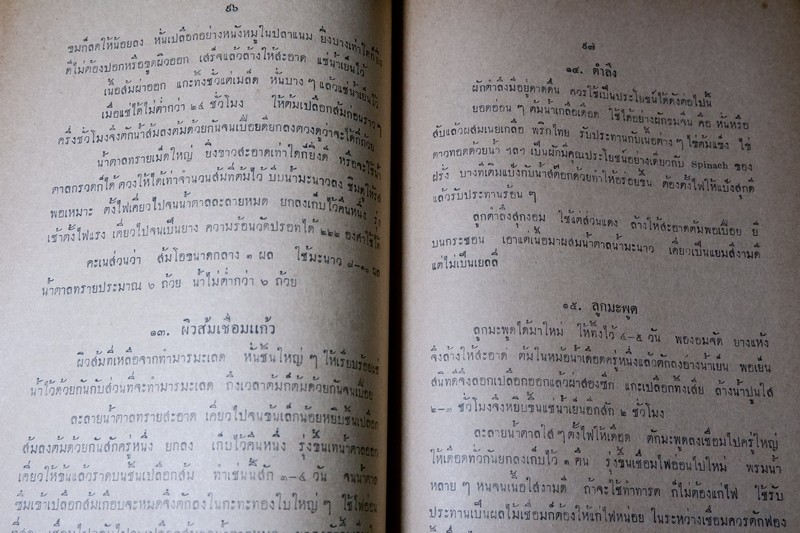 ๙๖
ชมก็ลดให้น้อยลง หั่นเปลือกอย่างหนังหมูในปลาแนม ยิ่งบางเท่าใดก็ยิ่ง
ดีไม่ต้องปอกหรือขูดผิวออก เสร็จแล้วล้างให้สะอาด แช่น้ำเย็นไว้
เนื้อส้มผ่าออก แกะทิ้งชั่วแต่เมล็ด หั่นบาง ๆ แล้วแช่น้ำเย็นไว้
เมื่อแช่ได้ไม่ต่ำกว่า ๒๔ ชั่วโมง ให้ต้มเปลือกส้มก่อนราว ๆ
ครึ่งชั่วโมงจึงตักน้ำส้มลงต้มด้วยกันจนเปื่อยดียกลงตวงดูว่าจะได้กี่ถ้วย
น้ำตาลทรายเม็ดใหญ่ ยิ่งขาวสะอาดเท่าใดก็ยิ่งดี หรือจะใช้น้ำ
ตาลกรวดก็ได้ ตวงให้ได้เท่าจำนวนส้มที่ต้มไว้ บีบน้ำมะนาวลง ชิมดูให้รส
พอเหมาะ ตั้งไฟเคี่ยวไปจนน้ำตาลละลายหมด ยกลงเก็บไว้คืนหนึ่ง รุ่ง
เช้าตั้งไฟแรง เคี่ยวไปจนเป็นยาง ความร้อนวัดปรอทได้ ๒๒๒ องศาใช้ได้
คะเนส่วนว่า ส้มโอขนาดกลาง ๑ ผล ใช้มะนาว ๘-๑๐ ผล
น้ำตาลทรายประมาณ ๖ ถ้วย น้ำไม่ต่ำกว่า ๖ ถ้วย
๑๓. ผิวส้มเชื่อมแก้ว
ผิวส้มที่เหลือจากทำมารมะเลด หั่นชิ้นใหญ่ ๆ ให้เรียบร้อยแช่
น้ำไว้ด้วยกันกับส่วนที่จะทำมารมะเลด ถึงเวลาต้มก็ต้มด้วยกันจนเปื่อย
ละลายน้ำตาลทรายสะอาด เคี่ยวไปจนข้นเล็กน้อยหยิบชิ้นเปลือก
ส้มลงต้มด้วยกันสักครู่หนึ่ง ยกลง เก็บไว้คืนหนึ่ง รุ่งขึ้นเทน้ำตาลออก
เคี่ยวให้ข้นแล้วราดบนชิ้นเปลือกส้ม ทำเช่นนี้สัก ๓-๔ วัน จนน้ำตาล
ซึมเข้าเปลือกส้มเกือบจะหมดจึงตักลงในกะทะทองใบใหญ่ ๆ ใช้ไฟอ่อน
๙๗
๑๔. ตำลึง
ผักตำลึงมีอยู่ดาดดื่น ควรใช้เป็นประโยชน์ได้ดังต่อไปนี้
ยอดอ่อน ๆ ต้มน้ำเกลือเดือด ใช้ได้อย่างผักขมจีน คือ หั่นหรือ
สับแล้วผสมเนยเกลือ พริกไทย รับประทานกับเนื้อต่าง ๆ ใช้ต้มแข็ง ใช้
ดาวทอดด้วยน้ำ ฯลฯ เป็นผักมีคุณประโยชน์อย่างเดียวกับ Spinach ของ
ฝรั่ง บางทีเติมแป้งกับน้ำสต๊อกด้วยทำให้อร่อยขึ้น ต้องตั้งไฟให้แป้งสุกดี
แล้วรับประทานร้อน ๆ
ลูกตำลึงสุกงอม ใช้แต่ส่วนแดง ล้างให้สะอาดต้มพอเปื่อย ยี
บนกระชอน เอาแต่เนื้อมาผสมน้ำตาลน้ำมะนาว เคี่ยวเป็นแยมสีงามดี
แต่ไม่เป็นเยลลี่
๑๕. ลูกมะพูด
ลูกมะพูดได้มาใหม่ ให้ทิ้งไว้ ๔-๕ วัน พองอมจัด ยางแห้ง
จึงล้างให้สะอาด ต้มในหม้อน้ำเดือดครู่หนึ่งแล้วตักลงอ่างน้ำเย็น พอเย็น
สนิทดีจึงลอกเปลือกออกแล้วผ่าสองซีก แกะเปลือกทิ้งเสีย ล้างน้ำปูนใส
๒-๓ ชั่วโมงจึงหยิบขึ้นแช่น้ำเย็นอีกสัก ๒ ชั่วโมง
ละลายน้ำตาลใส ๆ ตั้งไฟให้เดือด ตักมะพูดลงเชื่อมไปครู่ใหญ่
ให้เดือดทั่วกันยกลงเก็บไว้ ๑ คืน รุ่งขึ้นเชื่อมไฟอ่อนไปใหม่ พรมน้ำ
หลาย ๆ หนจนเนื้อใสงามดี ถ้าจะใช้ทำทารต ก็ไม่ต้องแก่ไฟ ใช้รับ
ประทานเป็นผลไม้เชื่อมก็ต้องให้แก่ไฟหน่อย ในระหว่างเชื่อมควรตักฟอง